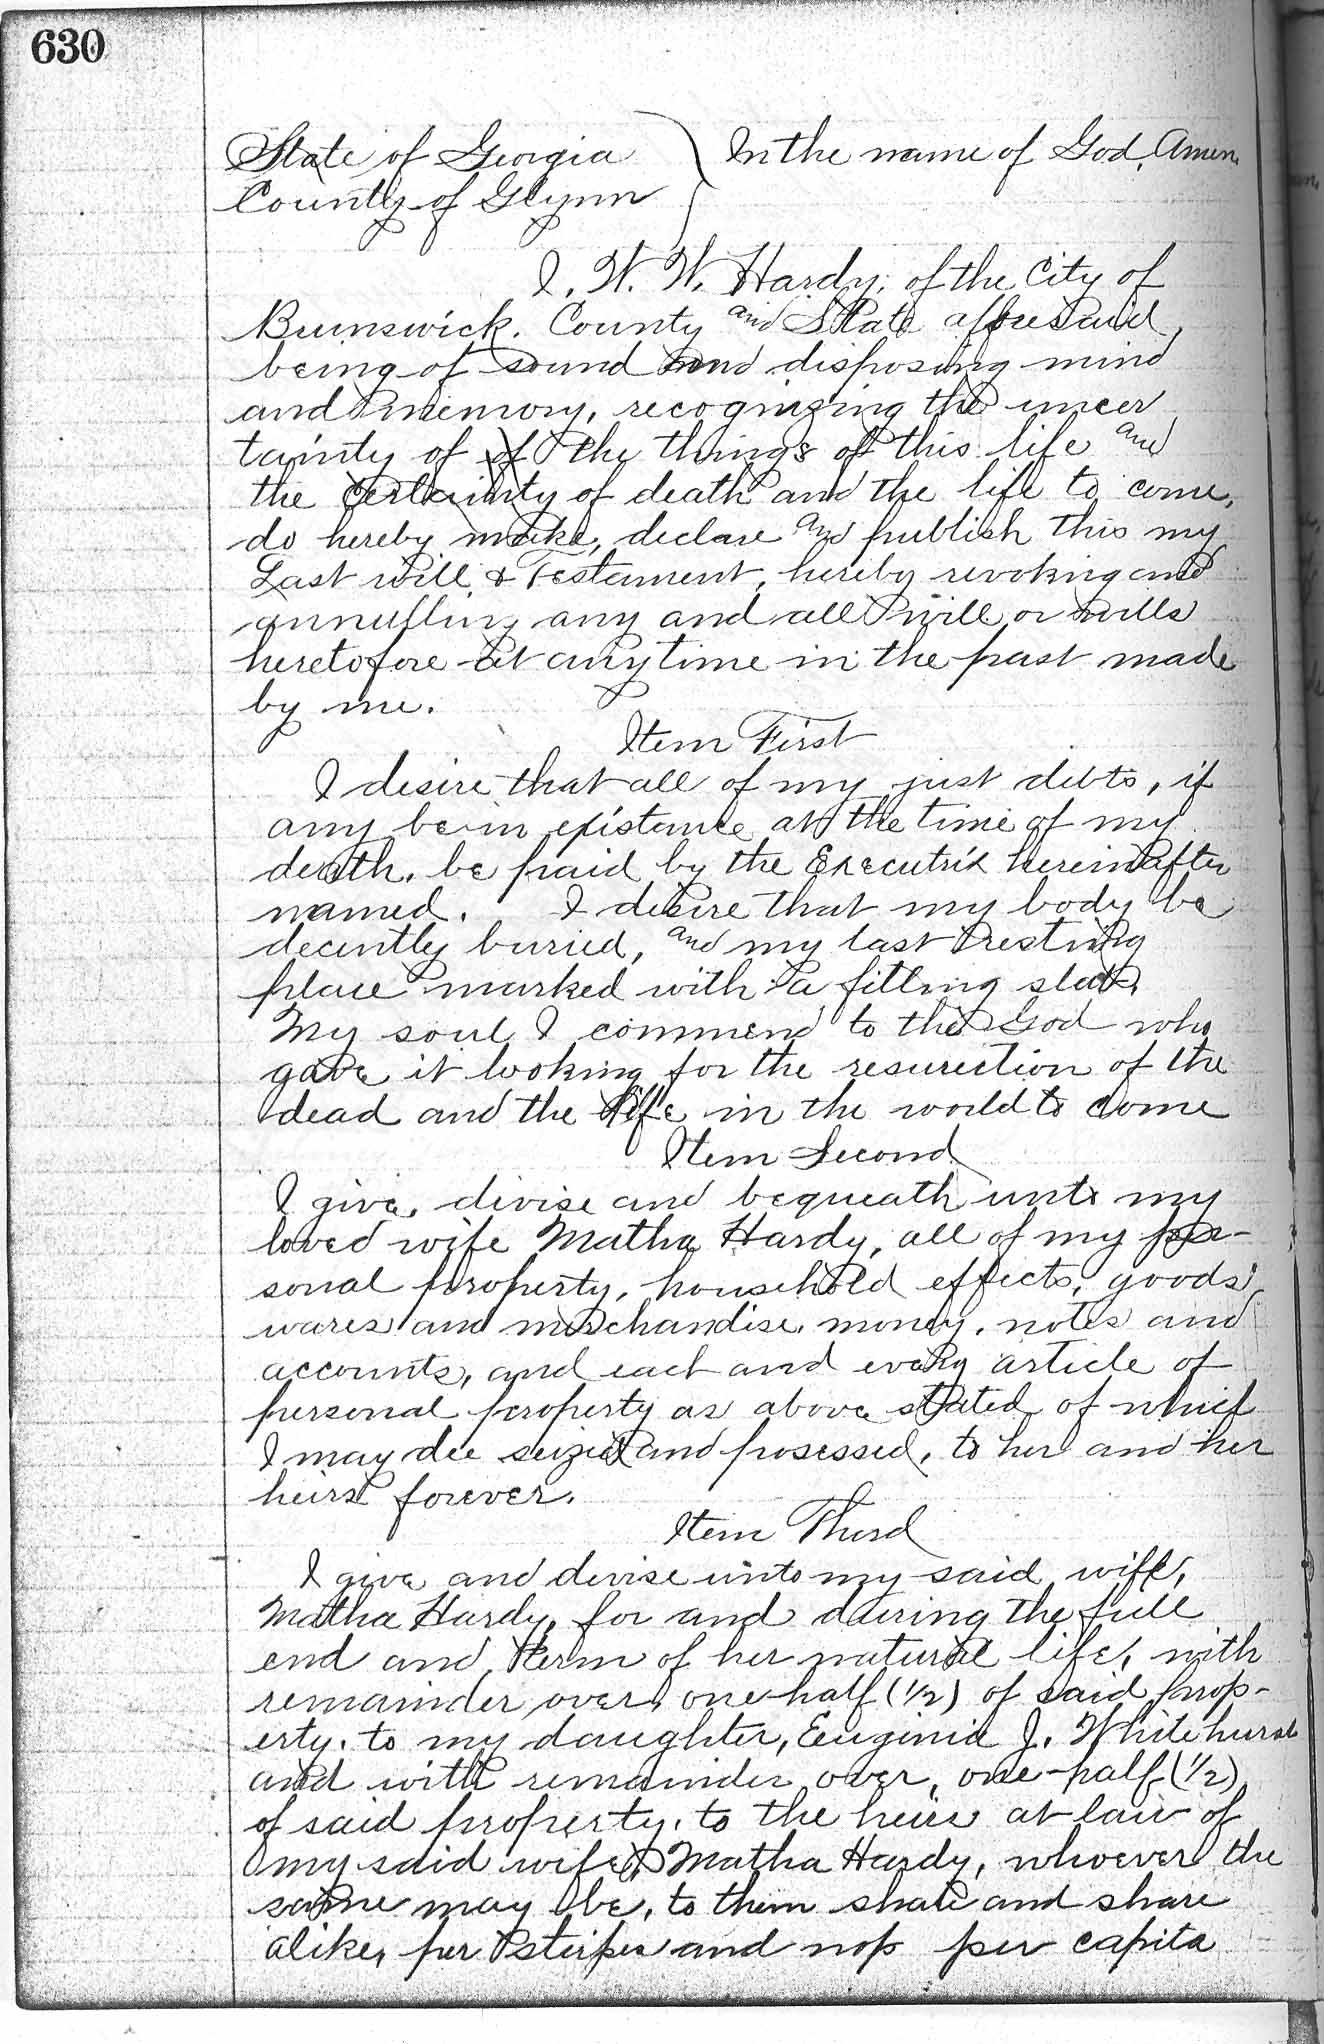 630
State of Georgia } In the name of God, Amen.
County of Glynn
I, W. W. Hardy, of the City of
Brunswick, County and State afforesaid,
being of sound and disposing mind
and memory, recognizing the uncer
tainty of of the things of this life and
the certainty of death and the life to come,
do hereby make, declare and publish this my
Last will & Testament, hereby revoking and
annulling any and all will or wills
heretofore at any time in the past made
by me.
Item First
I desire that all of my just debts, if
any be in existance at the time of my
death, be paid by the Executrix hereinafter
named. I desire that my body be
decently buried, and my last resting
place marked with a fitting slab.
My soul I commend to the God who
gave it looking for the resurection of the
dead and the life in the world to come
Item Second
I give, divise and bequeath unto my
loved wife Matha Hardy, all of my per-
sonal property, household effects, goods,
wares and merchandise, money, notes and
accounts, and each and every article of
personal property as above stated of which
I may die seized and posessed, to her and her
heirs forever.
Item Third
I give and devise unto my said wife,
Matha Hardy, for and during the full
end and term of her natural life, with
remainder over, one-half (1/2) of said prop-
erty, to my daughter, Euginia J. Whitehurst
and with remainder over, one-half (1/2)
of said property, to the heirs at law of
my said wife, Matha Hardy, whoever the
same may be, to them share and share
alike, per stirpes and not per capita